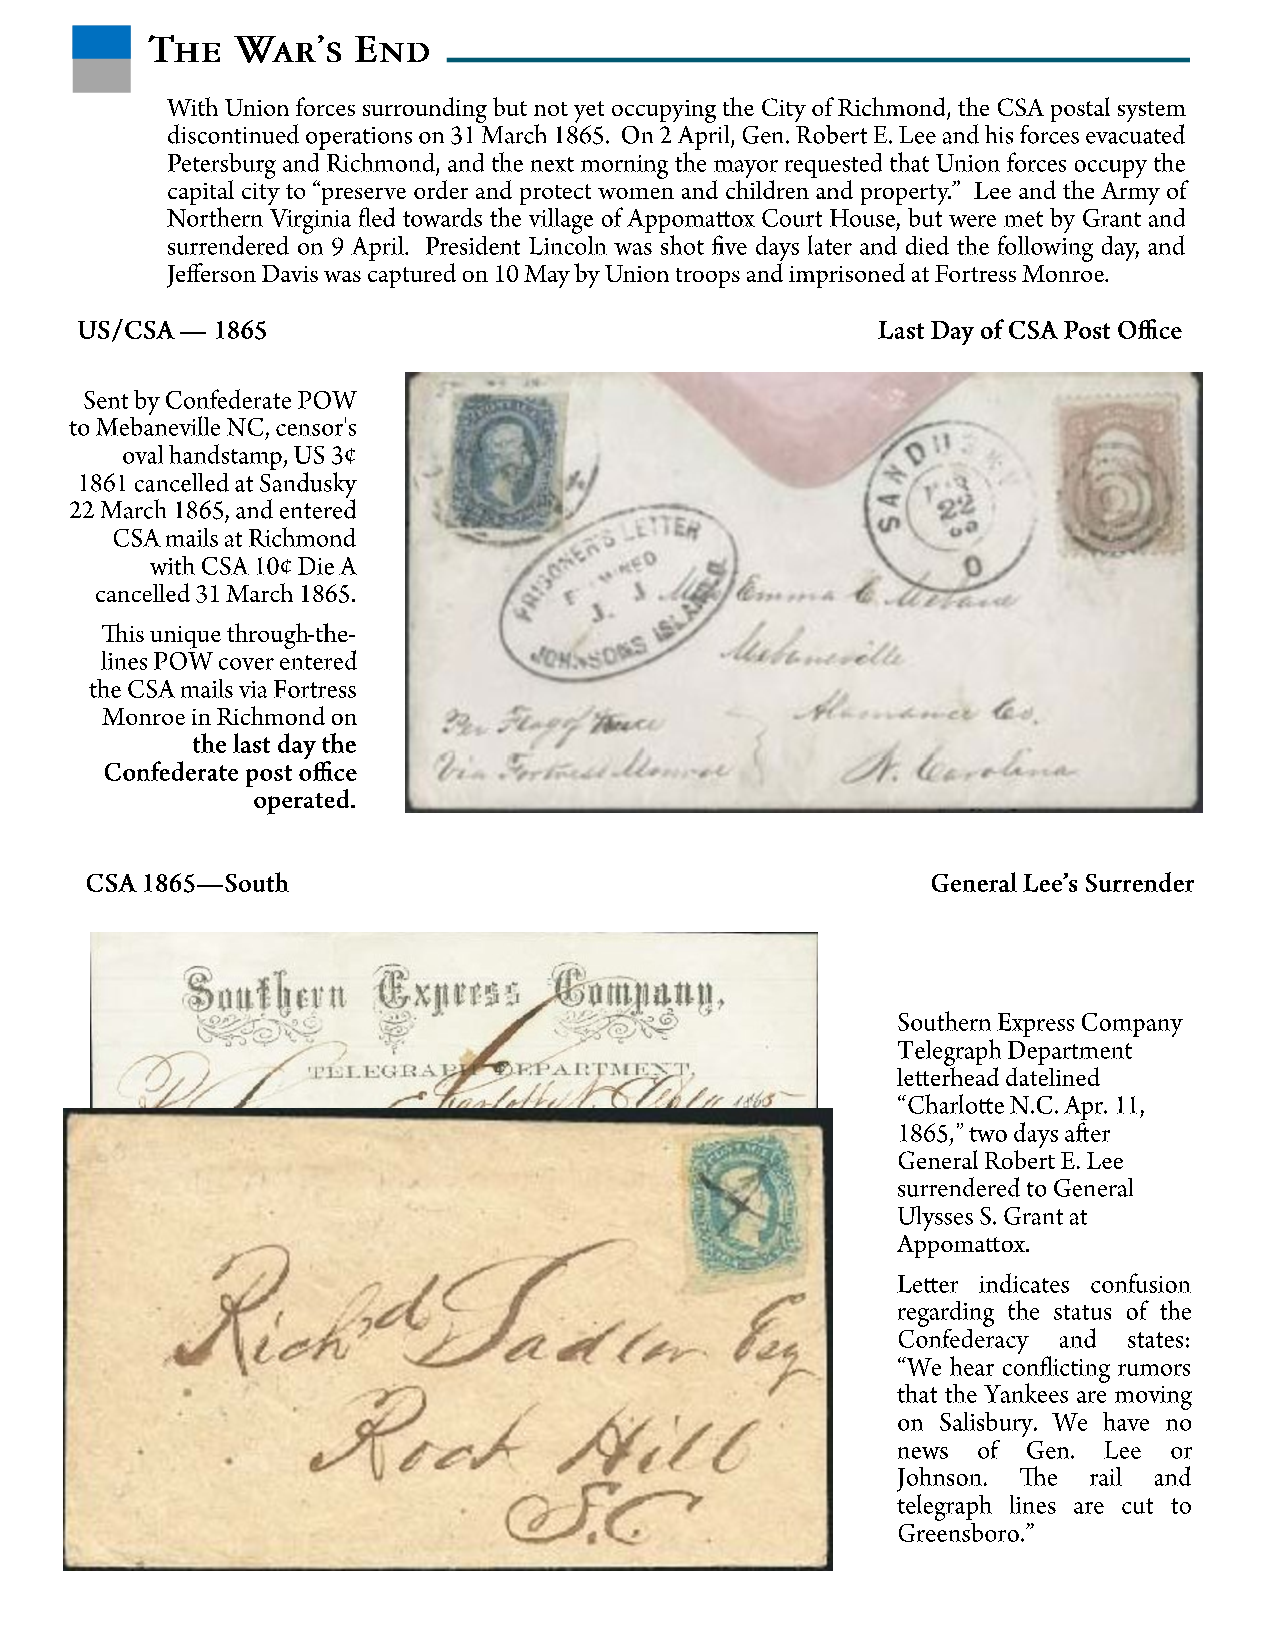 THE WAR'S END
With Union forces surrounding but not yet occupying the City of Richmond, the CSA postal system
discontinued operations on 31 March 1865.  On 2 April, Gen. Robert E. Lee and his forces evacuated
Petersburg and Richmond, and the next morning the mayor requested that Union forces occupy the
capital city to “preserve order and protect women and children and property.”  Lee and the Army of
Northern Virginia fled towards the village of Appomattox Court House, but were met by Grant and
surrendered on 9 April.  President Lincoln was shot five days later and died the following day, and
Jefferson Davis was captured on 10 May by Union troops and imprisoned at Fortress Monroe.
US/CSA — 1865
Last Day of CSA Post Office
Sent by Confederate POW
to Mebaneville NC, censor's
oval handstamp, US 3¢
1861 cancelled at Sandusky
22 March 1865, and entered
CSA mails at Richmond
with CSA 10¢ Die A
cancelled 31 March 1865.
This unique through-the-
lines POW cover entered
the CSA mails via Fortress
Monroe in Richmond on
the last day the
Confederate post office
operated.
SANDUSKY
MAR
22
O
PRISONER'S LETTER
JOHNSONS ISLAND.O.
Emma C. Mebane
Mebaneville
Alamance Co.
N. Carolina
Per Flag of Truce
Via Fortress Monroe
CSA 1865—South
General Lee's Surrender
Southern Express Company,
TELEGRAPH DEPARTMENT,
Charlotte N.C. Apl 11 1865
Rich'd Sadler Esq
Rock Hill
S.C.
Southern Express Company
Telegraph Department
letterhead datelined
“Charlotte N.C. Apr. 11,
1865,” two days after
General Robert E. Lee
surrendered to General
Ulysses S. Grant at
Appomattox.
Letter indicates confusion
regarding the status of the
Confederacy and states:
“We hear conflicting rumors
that the Yankees are moving
on Salisbury. We have no
news of Gen. Lee or
Johnson. The rail and
telegraph lines are cut to
Greensboro.”